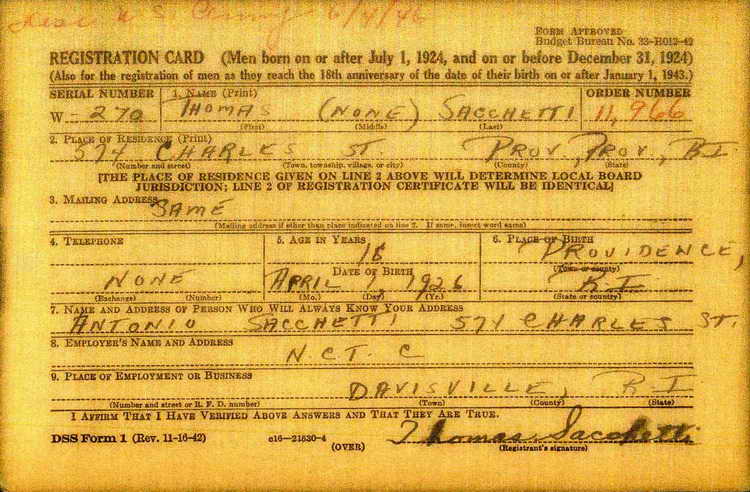 U.S. Army 6/4/46
FORM APPROVED
Budget Bureau No. 33-R012-42
REGISTRATION CARD (Men born on or after July 1, 1924, and on or before December 31, 1924)
(Also for the registration of men as they reach the 18th anniversary of the date of their birth on or after January 1, 1943.)
SERIAL NUMBER 1. NAME (Print) ORDER NUMBER
W-270 THOMAS (NONE) SACCHETTI 11,966
(First) (Middle) (Last)
2. PLACE OF RESIDENCE (Print)
574 CHARLES ST. PROV, PROV, R I
(Number and street) (Town, township, village, or city) (County) (State)
[THE PLACE OF RESIDENCE GIVEN ON LINE 2 ABOVE WILL DETERMINE LOCAL BOARD
JURISDICTION; LINE 2 OF REGISTRATION CERTIFICATE WILL BE IDENTICAL]
3. MAILING ADDRESS
SAME
(Mailing address if other than place indicated on line 2. If same, insert word same)
4. TELEPHONE 5. AGE IN YEARS 6. PLACE OF BIRTH
18 PROVIDENCE,
DATE OF BIRTH (Town or county)
NONE APRIL 1, 1926 R I
(Exchange) (Number) (Mo.) (Day) (Yr.) (State or country)
7. NAME AND ADDRESS OF PERSON WHO WILL ALWAYS KNOW YOUR ADDRESS
ANTONIO SACCHETTI 574 CHARLES ST.
8. EMPLOYER'S NAME AND ADDRESS
N.C.T.C
9. PLACE OF EMPLOYMENT OR BUSINESS
DAVISVILLE, R I
(Number and street or R. F. D. number) (Town) (County) (State)
I AFFIRM THAT I HAVE VERIFIED ABOVE ANSWERS AND THAT THEY ARE TRUE.
DSS Form 1 (Rev. 11-16-42) e16—21630-4 (OVER) Thomas Sacchetti
(Registrant's signature)